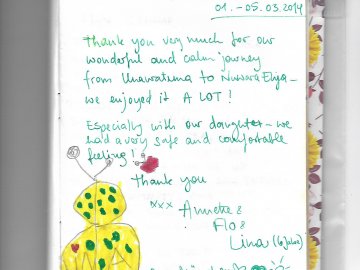 01. - 05.03.2014
Thank you very much for our
wonderful and calm journey
from Unawatuna to Nuwara Eliya –
we enjoyed it A LOT!
Especially with our daughter – we
had a very safe and comfortable
feeling!
Thank you
xxx Annette &
Flo &
Lina